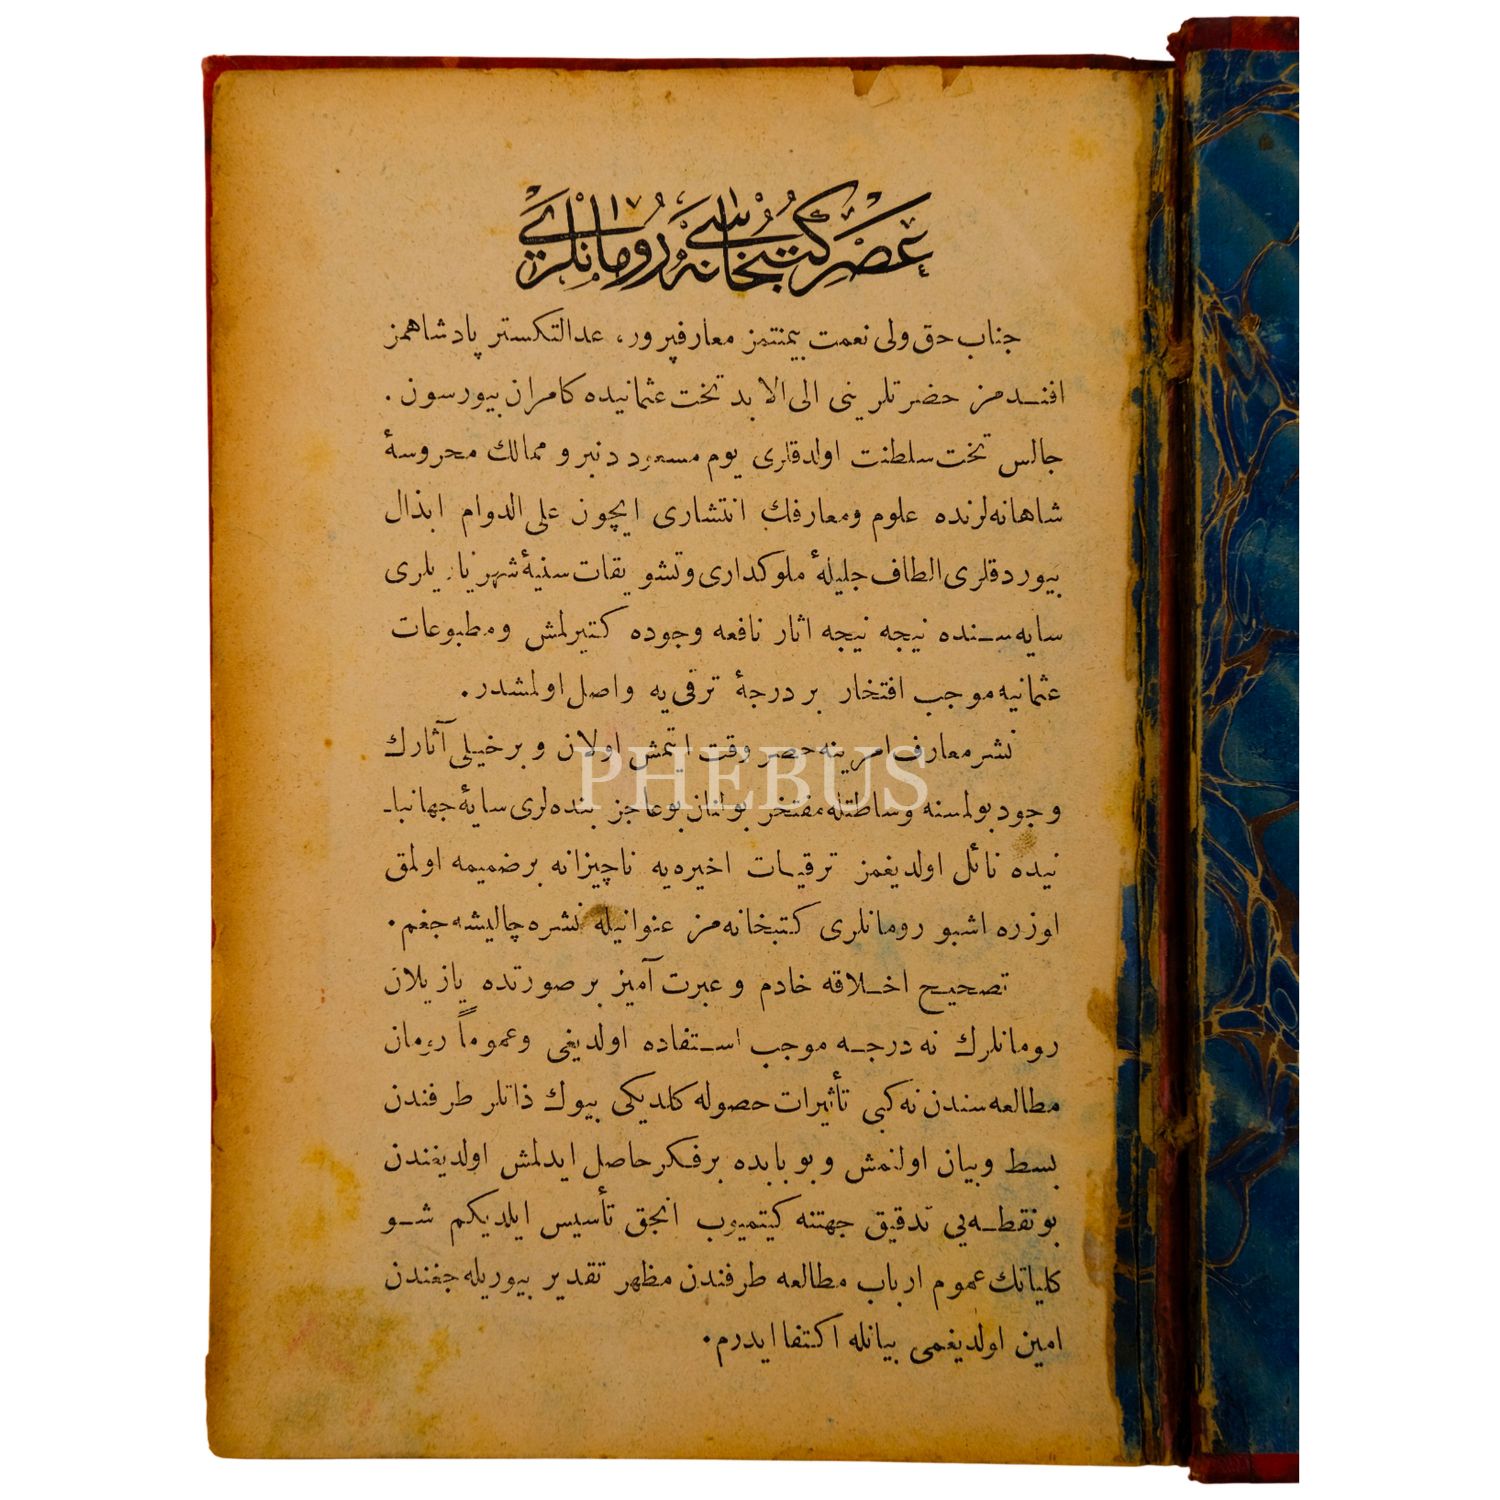 عصر كتبخانه‌سی رومانلری
جناب حق ولی نعمت بيمنتمز معارفپرور، عدالتكستر پادشاهمز
افندمز حضرتلرينی الی الابد تخت عثمانيده كامران بيورسون.
جالس تخت سلطنت اولدقلری يوم مسعوددنبرو ممالك محروسهٔ
شاهانه‌لرنده علوم ومعارفك انتشاری ايچون علی الدوام ابذال
بيوردقلری الطاف جليلهٔ ملوكداری وتشويقات سنيهٔ شهرياريلری
سايه‌سنده نيجه نيجه اثار نافعه وجوده كتيرلمش ومطبوعات
عثمانيه موجب افتخار بر درجهٔ ترقی‌يه واصل اولمشدر.
نشر معارف امرينه حصر وقت ايتمش اولان و بر خيلی آثارك
وجود بولمسنه وساطتله مفتخر بولنان بو عاجز بنده‌لری سايهٔ جهانبا-
نيده نائل اولديغمز ترقيات اخيره‌يه ناچيزانه بر ضميمه اولمق
اوزره اشبو رومانلری كتبخانه‌مز عنوانيله نشره چاليشه‌جغم.
تصحيح اخلاقه خادم و عبرت آميز بر صورتده يازيلان
رومانلرك نه درجه موجب استفاده اولديغی وعموماً رومان
مطالعه‌سندن نه كبی تأثيرات حصوله كلديكی بيوك ذاتلر طرفندن
بسط وبيان اولنمش و بو بابده بر فكر حاصل ايدلمش اولديغندن
بو نقطه‌يی تدقيق جهتنه كيتميوب انجق تأسيس ايلديكم شو
كلياتك عموم ارباب مطالعه طرفندن مظهر تقدير بيوريله‌جغندن
امين اولديغمی بيانله اكتفا ايدرم.
PHEBUS